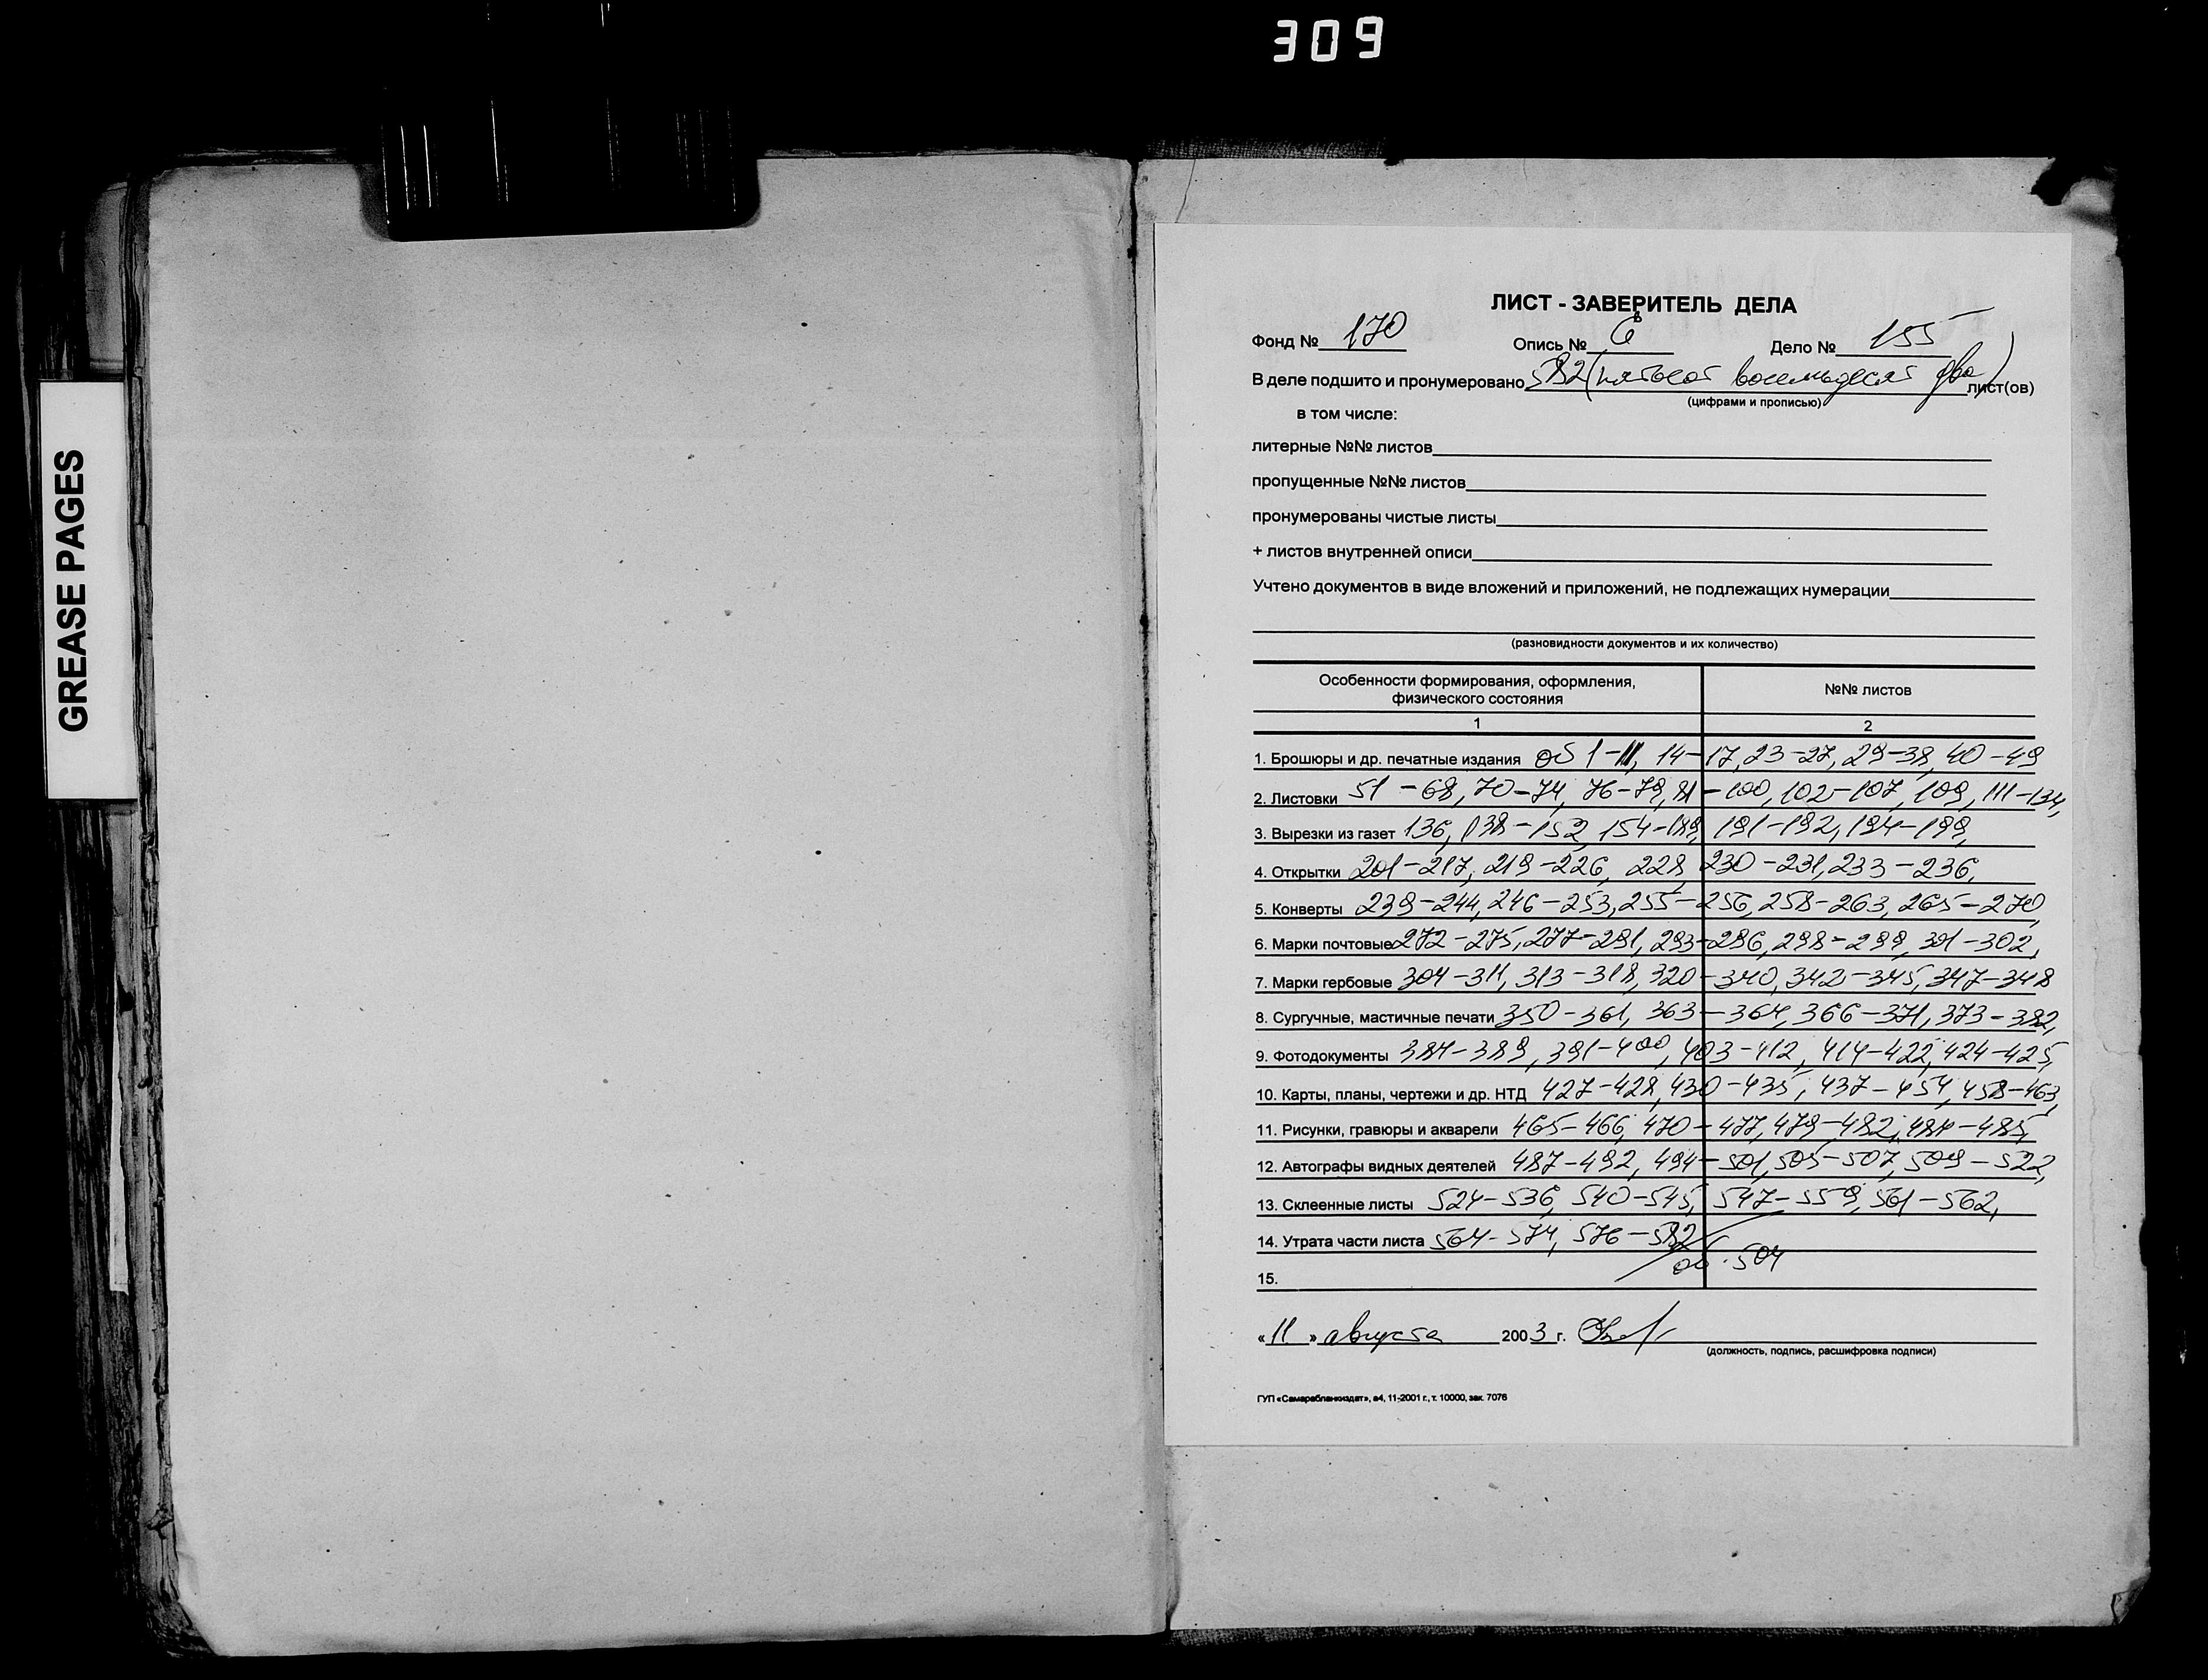 309
GREASE PAGES
ЛИСТ - ЗАВЕРИТЕЛЬ ДЕЛА
Фонд № 170 Опись № 6 Дело № 155
В деле подшито и пронумеровано 582 (пятьсот восемьдесят два) лист(ов)
(цифрами и прописью)
в том числе:
литерные №№ листов
пропущенные №№ листов
пронумерованы чистые листы
+ листов внутренней описи
Учтено документов в виде вложений и приложений, не подлежащих нумерации
(разновидности документов и их количество)
Особенности формирования, оформления, №№ листов
физического состояния
1 2
1. Брошюры и др. печатные издания об 1-11, 14-17, 23-27, 29-38, 40-49
2. Листовки 51-68, 70-74, 76-79, 81-100, 102-107, 109, 111-134,
3. Вырезки из газет 136, 138-152, 154-189, 191-192, 194-199,
4. Открытки 201-217, 219-226, 228, 230-231, 233-236,
5. Конверты 239-244, 246-253, 255-256, 258-263, 265-270,
6. Марки почтовые 272-275, 277-291, 293-296, 298-299, 301-302,
7. Марки гербовые 304-311, 313-318, 320-340, 342-345, 347-348
8. Сургучные, мастичные печати 350-361, 363-364, 366-371, 373-382,
9. Фотодокументы 384-389, 391-400, 403-412, 414-422, 424-425,
10. Карты, планы, чертежи и др. НТД 427-428, 430-435, 437-454, 458-463,
11. Рисунки, гравюры и акварели 465-466, 470-477, 479-482, 484-485,
12. Автографы видных деятелей 487-492, 494-501, 505-507, 509-522,
13. Склеенные листы 524-536, 540-545, 547-559, 561-562,
14. Утрата части листа 564-574, 576-582
об. 504
15.
«11» августа 2003 г.
(должность, подпись, расшифровка подписи)
ГУП «Самарабланкиздат», а4, 11-2001 г., т. 10000, зак. 7076